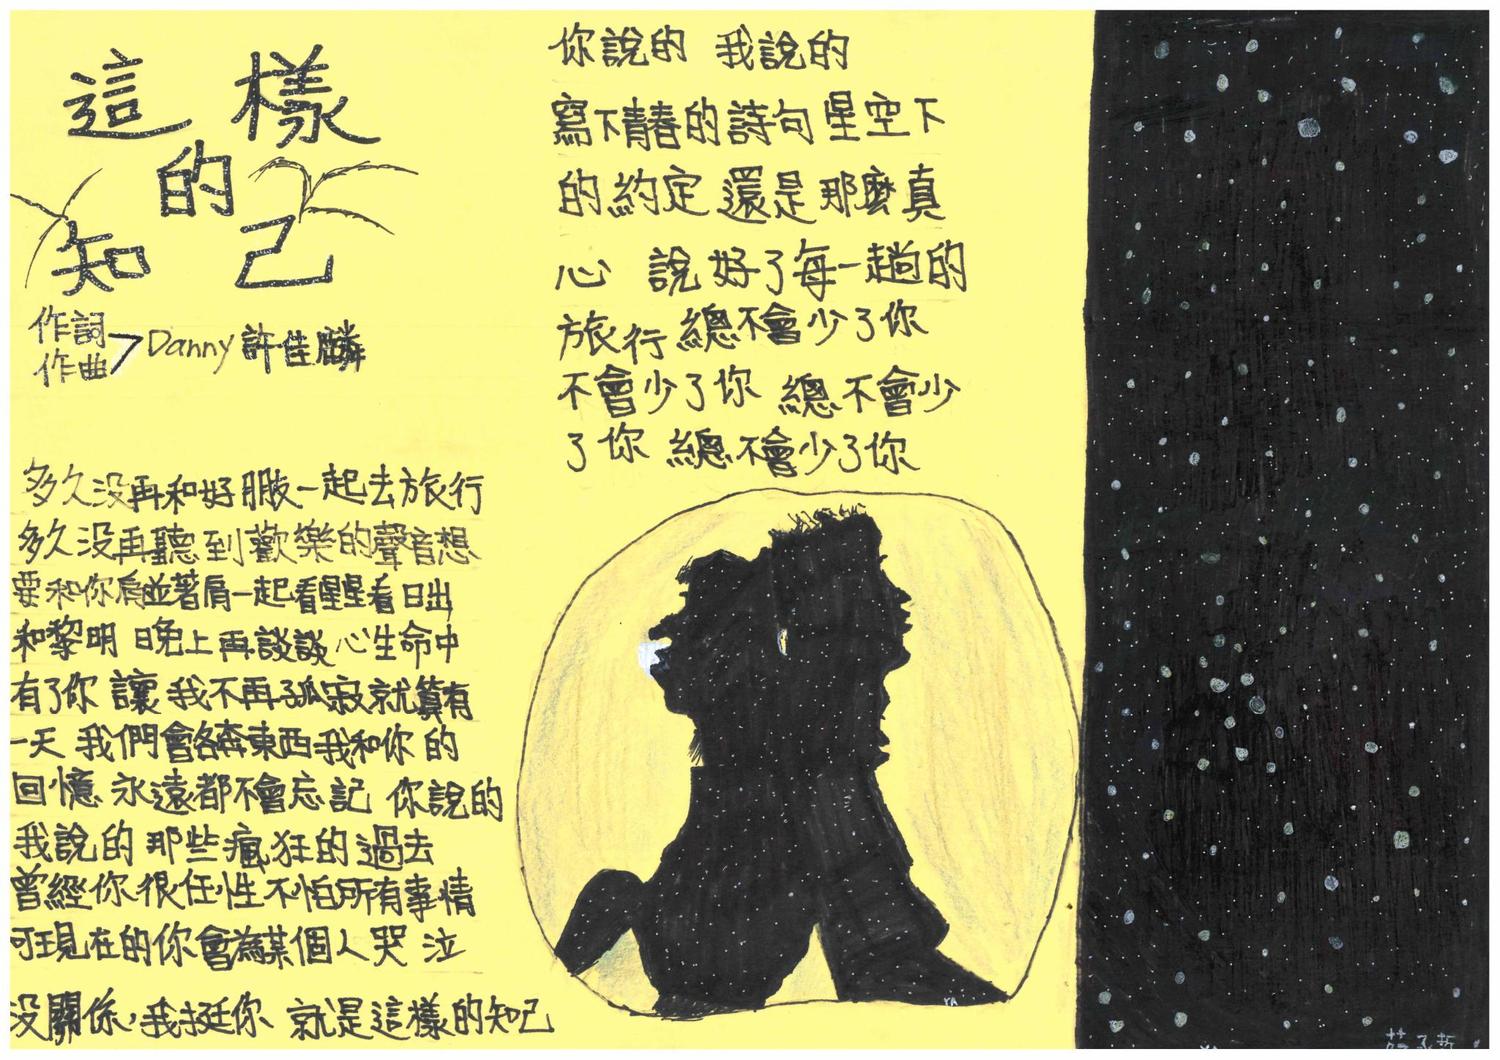 這樣
的
知己
作詞
作曲 > Danny 許佳麟
多久没再和好朋友一起去旅行
多久没再聽到歡樂的聲音想
要和你肩並著肩一起看星星看日出
和黎明 晚上再談談心生命中
有了你 讓我不再孤寂就算有
一天 我們會各奔東西我和你的
回憶 永遠都不會忘記 你說的
我說的 那些瘋狂的過去
曾經你很任性不怕所有事情
可現在的你會為某個人哭泣
没關係,我挺你 就是這樣的知己
你說的 我說的
寫下青春的詩句星空下
的約定還是那麼真
心 說好了每一趟的
旅行總不會少了你
不會少了你 總不會少
了你 總不會少了你